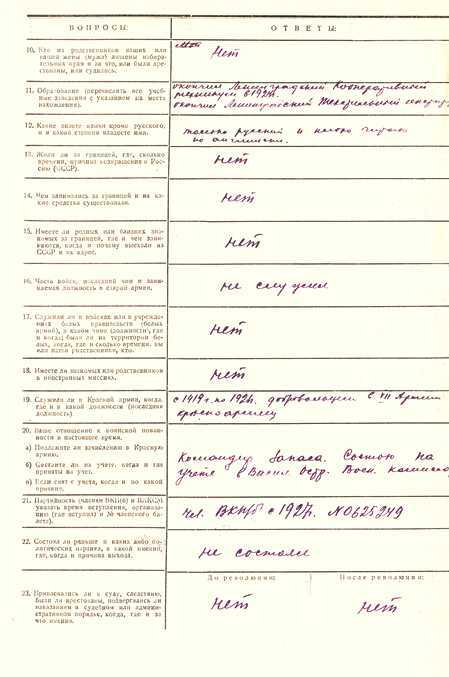 ВОПРОСЫ: ОТВЕТЫ:
10. Кто из родственников ваших или
вашей жены (мужа) лишены избира-
тельных прав и за что, или были аре-
стованы, или судились.
Нет
11. Образование (перечислить все учеб-
ные заведения с указанием их места
нахождения).
окончил Ленинградский Кооперативный
техникум в 192
окончил Ленинградский
12. Какие знаете языки кроме русского,
и в какой степени владеете ими.
только русский и немного читаю
по английски.
13. Жили ли за границей, где, сколько
времени, причина возвращения в Рос-
сию (СССР).
нет
14. Чем занимались за границей и на ка-
кие средства существовали.
нет
15. Имеете ли родных или близких зна-
комых за границей, где и чем зани-
маются, когда и почему выехали из
СССР и их адрес.
нет
16. Часть войск, последний чин и зани-
маемая должность в старой армии.
не служил
17. Служили ли в войсках или в учрежде-
ниях белых правительств (белых
армий), в каком чине (должности), где
и когда; были ли на территории бе-
лых, когда, где и сколько времени, вы
или ваши родственники, кто.
нет
18. Имеете ли знакомых или родственников
в иностранных миссиях.
нет
19. Служили ли в Красной армии, когда,
где и в какой должности (последняя
должность).
с 1919 г. по 192 добровольцем в VII Армии
красноармеец
20. Ваше отношение к воинской повин-
ности в настоящее время.
а) Подлежите ли зачислению в Красную
армию.
б) Состоите ли на учете, когда и где
приняты на учет.
в) Если снят с учета, когда и по какой
причине.
Командир Запаса. Состою на
учете в Васил. Остр. Воен.
21. Партийность (членам ВКП(б) и ВЛКСМ)
указать время вступления, организа-
цию (где вступил) и № членского би-
лета).
Чл. ВКП(б) с 1927г. №0625249
22. Состояли ли раньше в каких либо по-
литических партиях, в какой именно,
где, когда и причина выхода.
не состоял
До революции: После революции:
23. Привлекались ли к суду, следствию,
были ли арестованы, подвергались ли
наказаниям в судебном или админи-
стративном порядке, когда, где и за
что именно.
нет нет